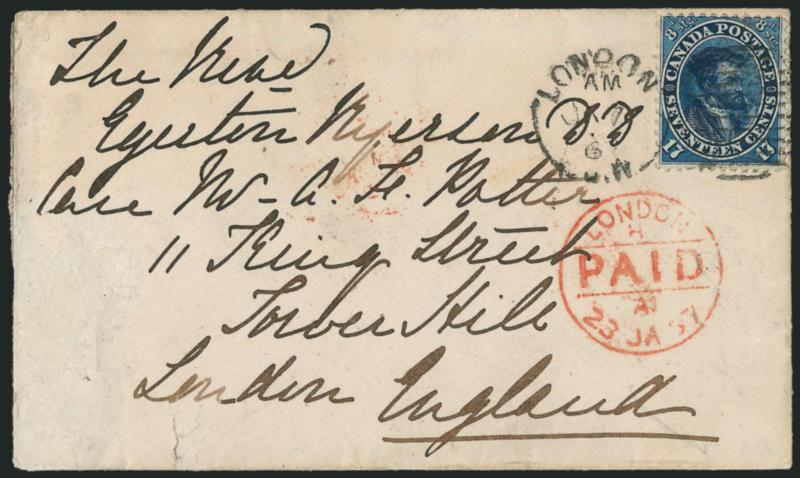 The Revd
Egerton Ryerson D D
Care Mr A. F. Potter
11 King Street
Tower Hill
London England
LONDON
AM
JA
6
C.W
8 stg. CANADA POSTAGE 8 stg.
SEVENTEEN CENTS
17 17
LONDON
PAID
23 JA 67